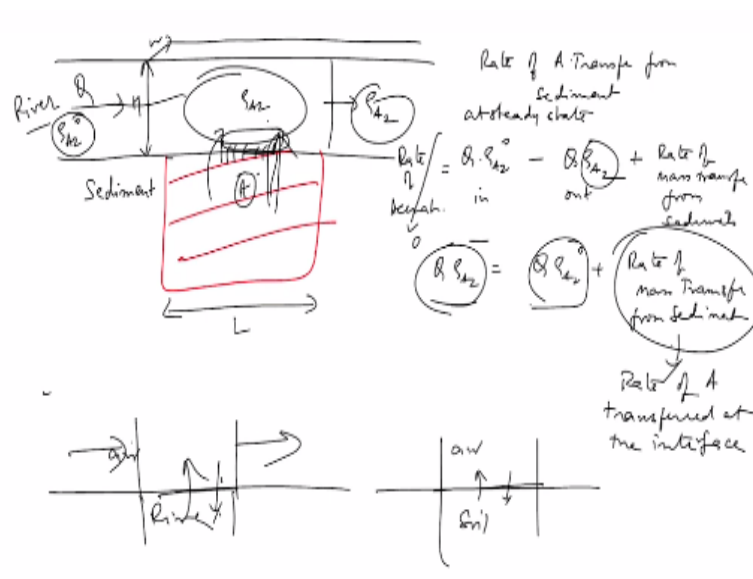 w
River Q
h
ρA2°
ρA2
ρA2
Sediment
A
L
Rate of A Transfe from
sediment
at steady state
Rate
of
Accum.
0
= Q.ρA2° - QρA2 + Rate of
in
out
mass transfe
from
sediments
QρA2 = QρA2° + Rate of
mass Transfe
from Sediment
Rate of A
transferred at
the interface
air
River
air
Soil